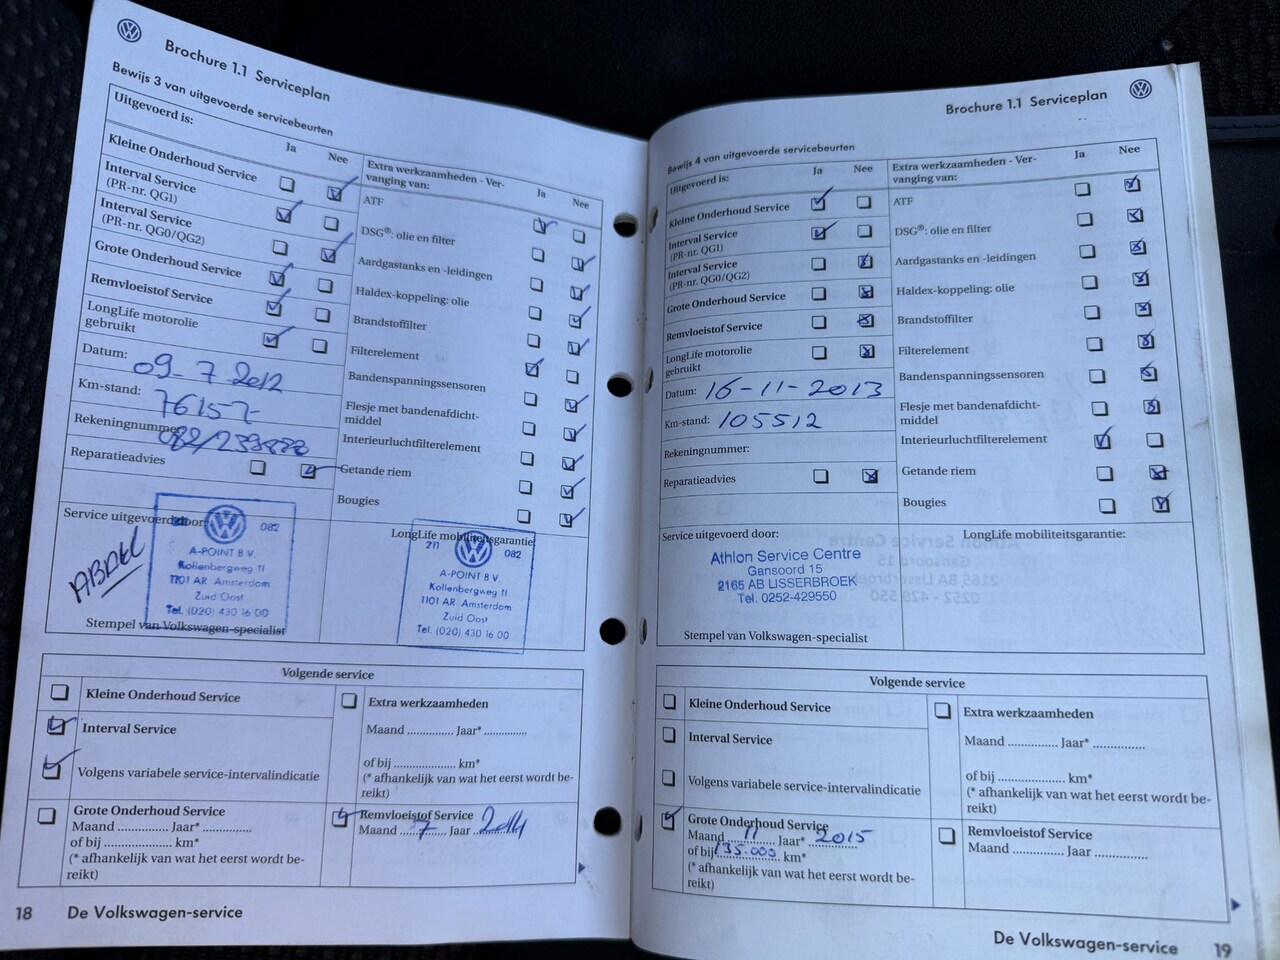 Brochure 1.1 Serviceplan
Bewijs 3 van uitgevoerde servicebeurten
Uitgevoerd is:
Ja Nee
Kleine Onderhoud Service
Interval Service
(PR-nr. QG1)
Interval Service
(PR-nr. QG0/QG2)
Grote Onderhoud Service
Remvloeistof Service
LongLife motorolie
gebruikt
Datum: 09-7 2012
Km-stand: 76157-
Rekeningnummer:
Reparatieadvies
Extra werkzaamheden - Ver-
vanging van:
Ja Nee
ATF
DSG®: olie en filter
Aardgastanks en -leidingen
Haldex-koppeling: olie
Brandstoffilter
Filterelement
Bandenspanningssensoren
Flesje met bandenafdicht-
middel
Interieurluchtfilterelement
Getande riem
Bougies
Service uitgevoerd door:
ABDEL
082
A-POINT B.V.
Kollenbergweg 11
1101 AR Amsterdam
Zuid Oost
Tel. (020) 430 16 00
Stempel van Volkswagen-specialist
LongLife mobiliteitsgarantie:
082
A-POINT B.V.
Kollenbergweg 11
1101 AR Amsterdam
Zuid Oost
Tel. (020) 430 16 00
Volgende service
Kleine Onderhoud Service
Interval Service
Volgens variabele service-intervalindicatie
Grote Onderhoud Service
Maand ............. Jaar* ............
of bij .................. km*
(* afhankelijk van wat het eerst wordt be-
reikt)
Extra werkzaamheden
Maand ............. Jaar* ............
of bij .................. km*
(* afhankelijk van wat het eerst wordt be-
reikt)
Remvloeistof Service
Maand 7 Jaar 2014
18 De Volkswagen-service
Brochure 1.1 Serviceplan
Bewijs 4 van uitgevoerde servicebeurten
Uitgevoerd is:
Ja Nee
Kleine Onderhoud Service
Interval Service
(PR-nr. QG1)
Interval Service
(PR-nr. QG0/QG2)
Grote Onderhoud Service
Remvloeistof Service
LongLife motorolie
gebruikt
Datum: 16-11-2013
Km-stand: 105512
Rekeningnummer:
Reparatieadvies
Extra werkzaamheden - Ver-
vanging van:
Ja Nee
ATF
DSG®: olie en filter
Aardgastanks en -leidingen
Haldex-koppeling: olie
Brandstoffilter
Filterelement
Bandenspanningssensoren
Flesje met bandenafdicht-
middel
Interieurluchtfilterelement
Getande riem
Bougies
Service uitgevoerd door:
Athlon Service Centre
Gansoord 15
2165 AB LISSERBROEK
Tel. 0252-429550
Stempel van Volkswagen-specialist
LongLife mobiliteitsgarantie:
Volgende service
Kleine Onderhoud Service
Interval Service
Volgens variabele service-intervalindicatie
Grote Onderhoud Service
Maand 11 Jaar* 2015
of bij 135.000 km*
(* afhankelijk van wat het eerst wordt be-
reikt)
Extra werkzaamheden
Maand ............. Jaar* ............
of bij .................. km*
(* afhankelijk van wat het eerst wordt be-
reikt)
Remvloeistof Service
Maand ............. Jaar ............
De Volkswagen-service 19